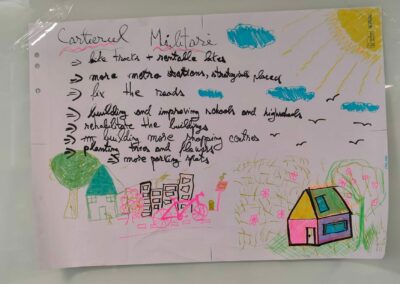 Cartierul Militari
bike tracks + rentable bikes
more metro stations, strategically placed
fix the roads
building and improving schools and highschools
rehabilitate the buildings
building more shopping centres
planting trees and flowers
more parking spots